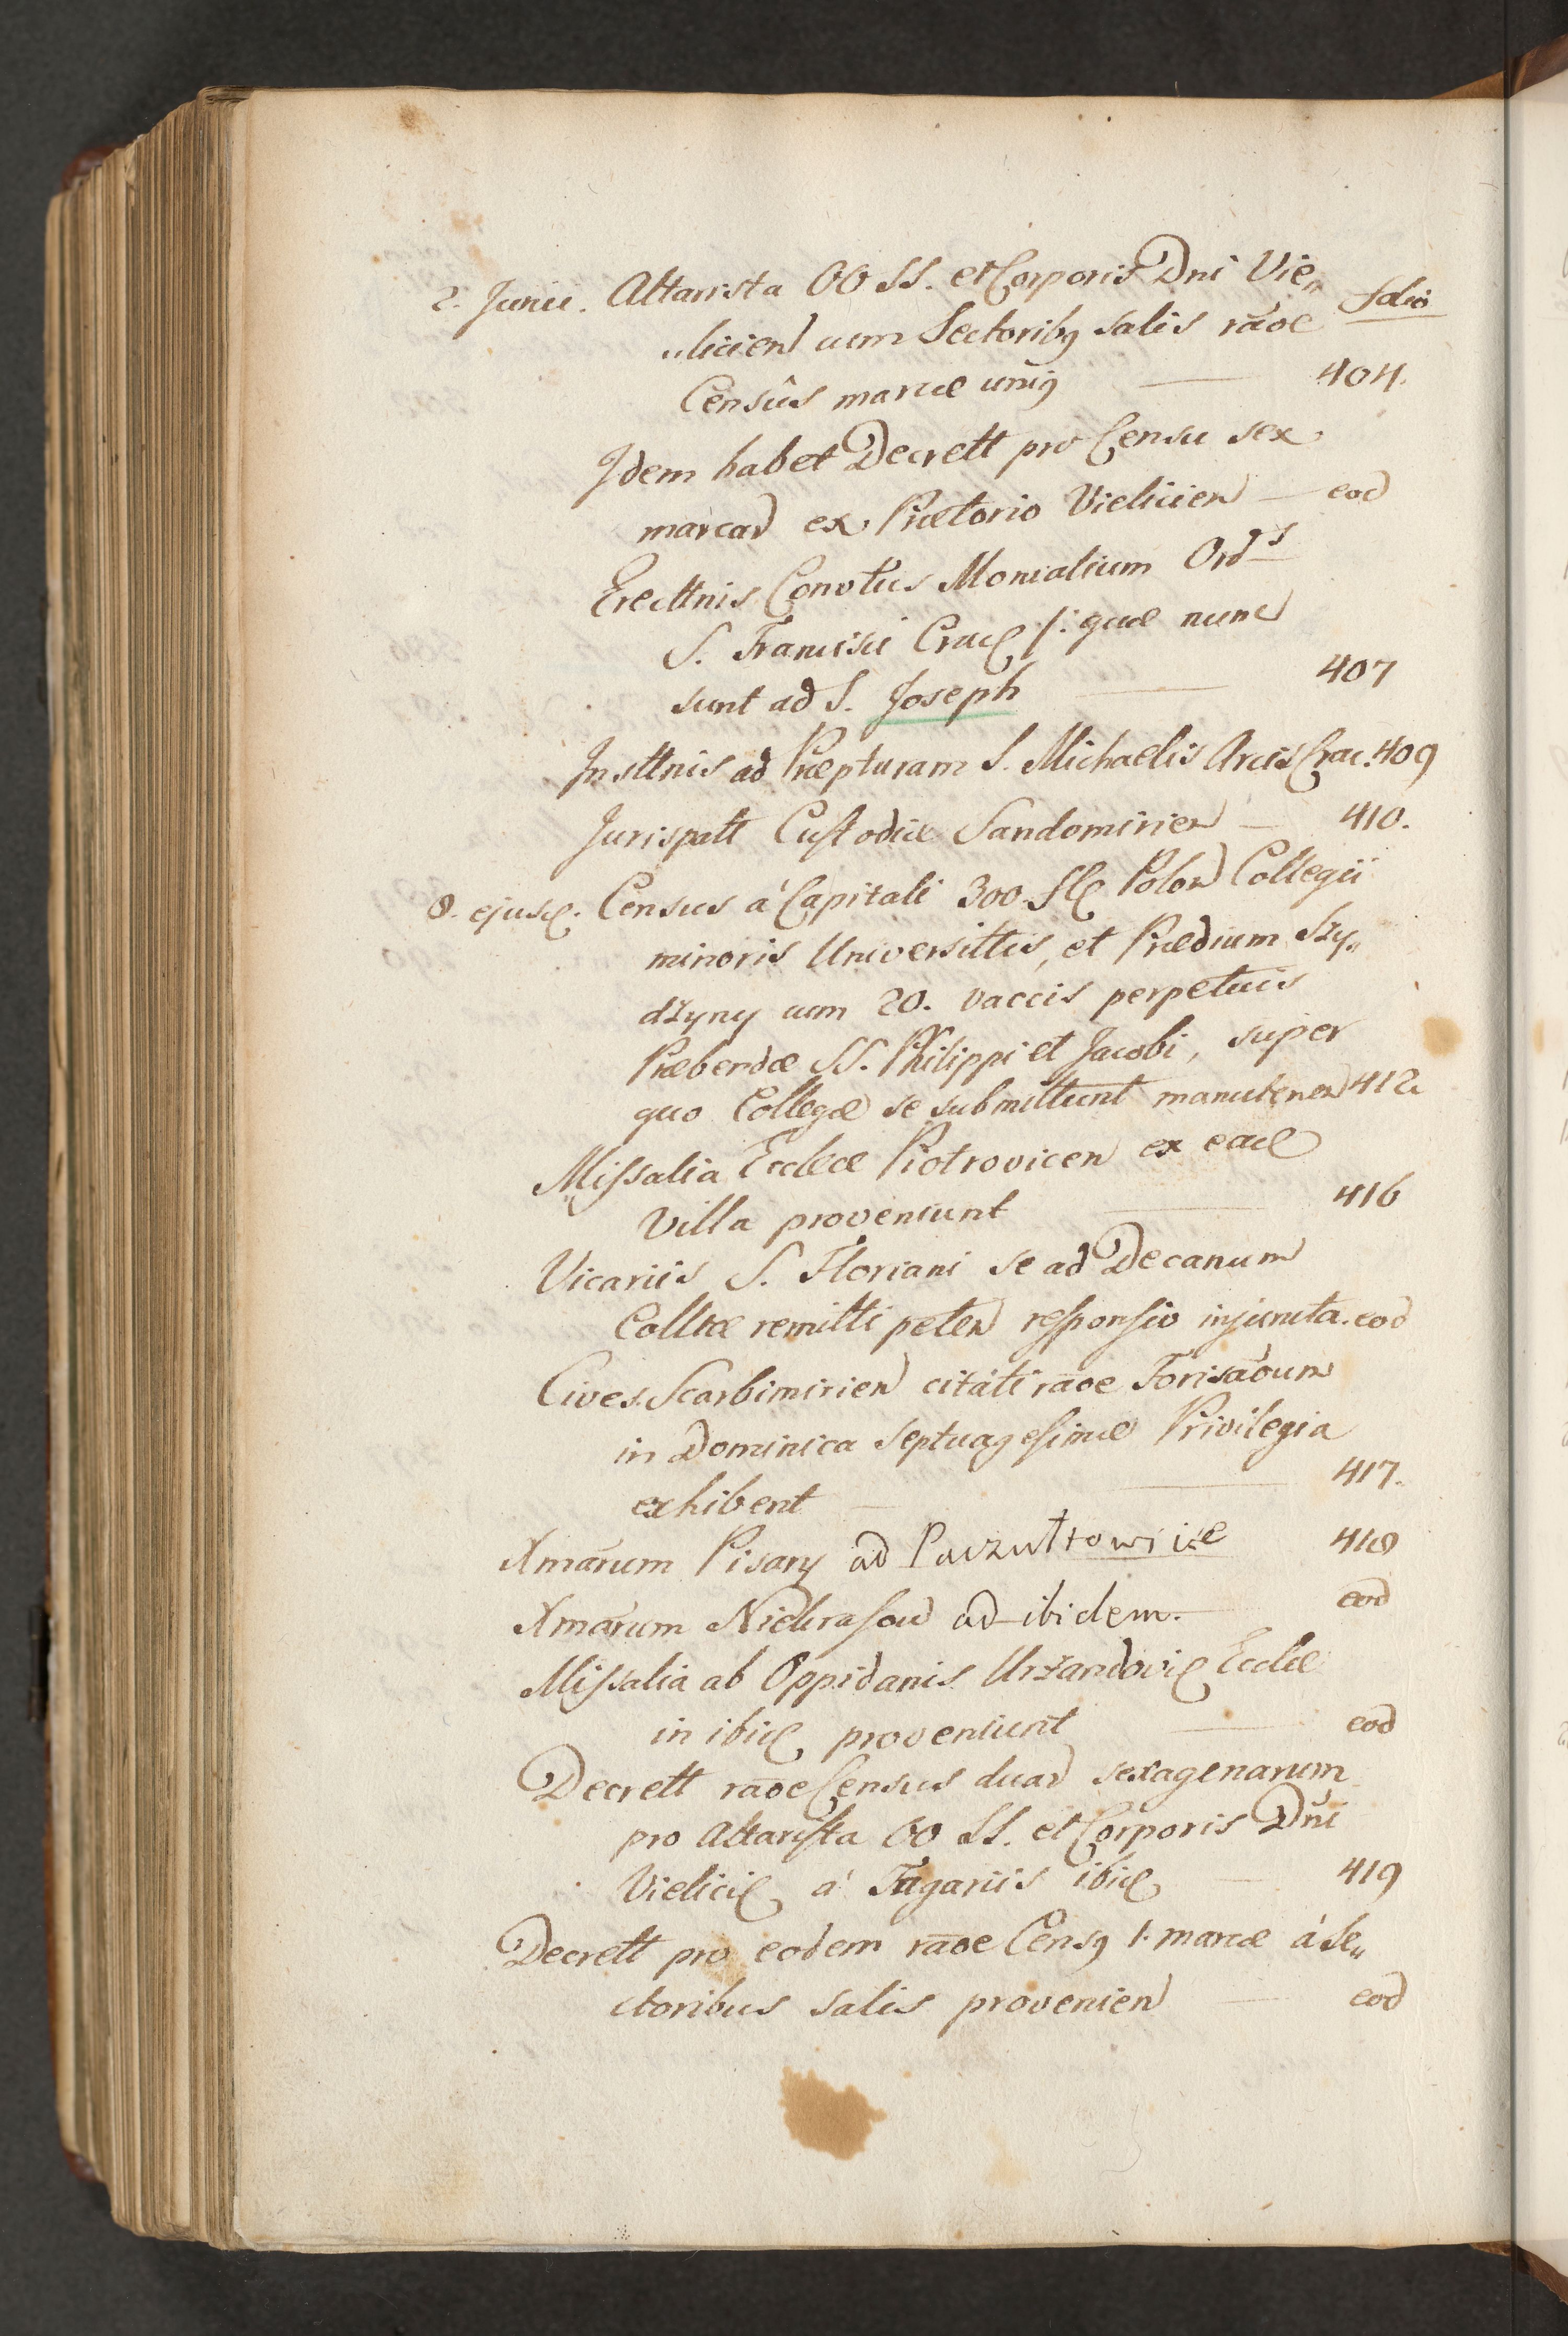 2. Junii. Altarista OO SS. et Corporis Dni Vie„ folio
„licien cum Sectoribꝰ salis raõe
Censûs marcæ uniꝰ — 404.
Idem habet Decrett pro Censu sex
marcar ex Prætorio Vielicien — eod
Erecttnis Convtus Monialium Ordis
S. Francisci Crac /: quæ nunc
sunt ad S. Joseph — 407
Insttnis ad Præpturam S. Michaelis Arcis Crac. 409
Jurispatt Custodiæ Sandomirien — 410.
8. ejusd. Census á Capitali 300. fl Polon Collegii
minoris Universittis, et Prædium Szy„
dzyny cum 20. vaccis perpetuis
Præbendæ SS. Philippi et Jacobi, super
quo Collegæ se submittunt manutenen 412
Missalia Eccleæ Piotrovicen ex ead
Villa proveniunt — 416
Vicariis S. Floriani se ad Decanum
Colltæ remitti peten responsio injuncta. eod
Cives Scarbimirien citáti raõe Forisaõum
in Dominica Septuagesimæ Privilegia
exhibent — 417.
Xmarum Pisary ad Paczultowice 418
Xmarum Niekrasow ad ibidem. eod
Missalia ab Oppidanis Urzandovic Eccleæ
in ibid proveniunt — eod
Decrett raõe Census duar sexagenarum
pro Altarista OO SS. et Corporis Dni
Vielicien á Fagariis ibid — 419
Decrett pro eodem raõe Censꝰ 1. marcæ á Se„
ctoribus salis provenien — eod